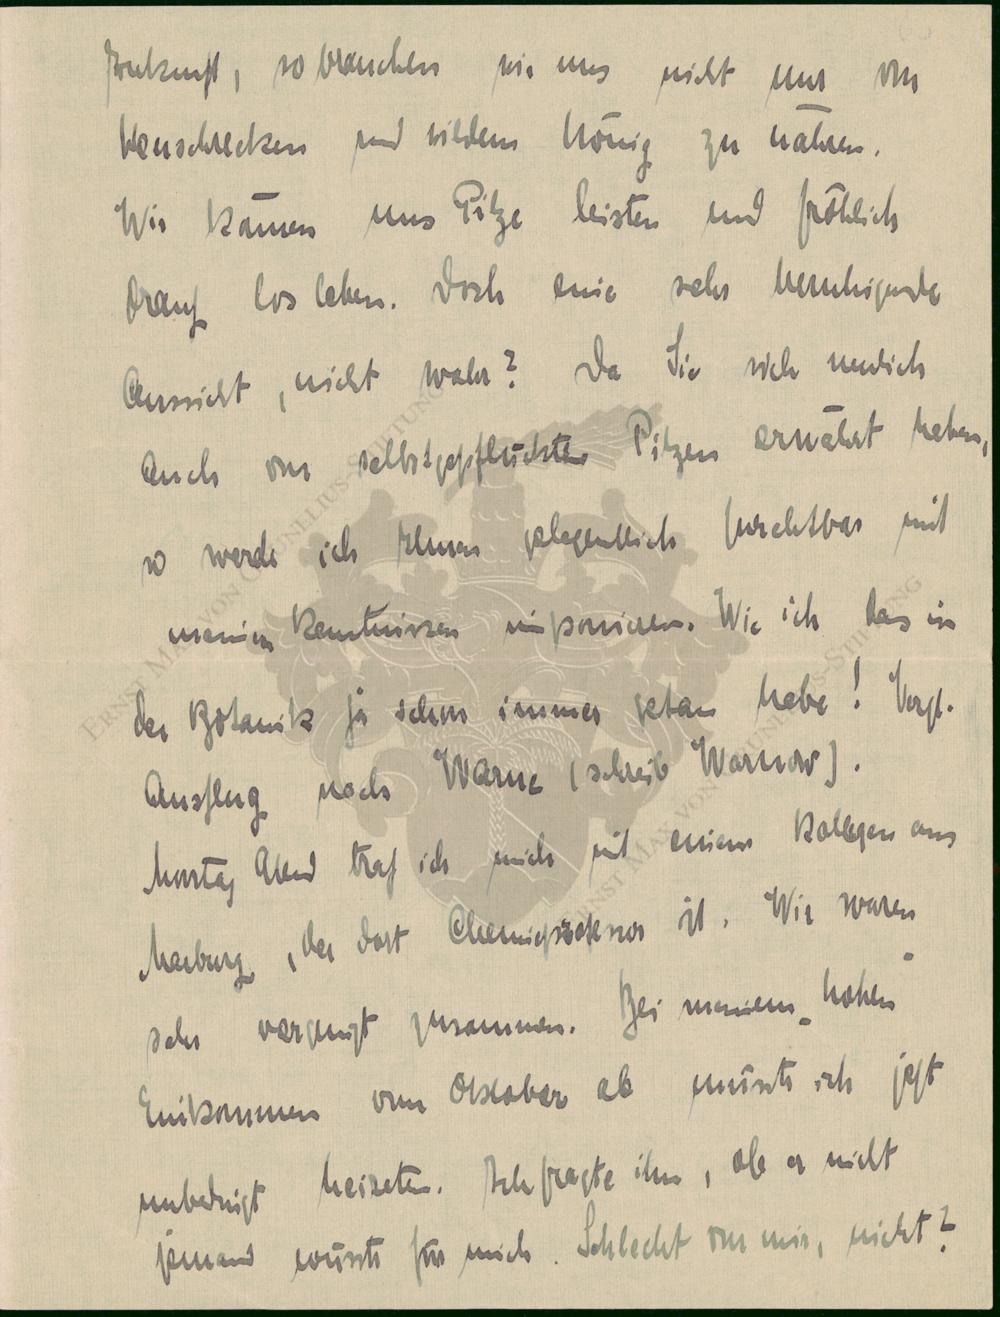 Zukunft, so brauchen wir uns nicht nur von
Heuschrecken und wildem Hönig zu nähren.
Wir können uns Pilze leisten und fröhlich
drauf los leben. Doch eine sehr beruhigende
Aussicht, nicht wahr? Da Sie sich neulich
auch von selbstgepflückten Pilzen ernährt haben,
so werde ich Ihnen gelegentlich furchtbar mit
meinen Kenntnissen imponieren. Wie ich das in
der Botanik ja schon immer getan habe! Vergl.
Ausflug nach Warne (schreib Warnow).
Montag Abend traf ich mich mit einem Kollegen aus
Marburg, der dort Chemieprofessor ist. Wir waren
sehr vergnügt zusammen. Bei meinem hohen
Einkommen vom Oktober ab müsste ich jetzt
unbedingt heiraten. Ich fragte ihn, ob er nicht
jemand wüsste für mich. Schlecht von mir, nicht?
ERNST MAX VON GRUNELIUS-STIFTUNG
ERNST MAX VON GRUNELIUS-STIFTUNG